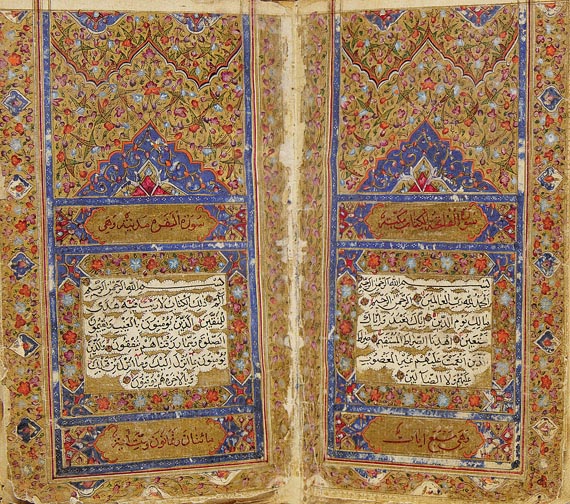 سورة الفاتحة الكتاب مكية
بسم الله الرحمن الرحيم
الحمد لله رب العالمين الرحمن الرحيم
مالك يوم الدين اياك نعبد واياك
نستعين اهدنا الصراط المستقيم صراط
الذين انعمت عليهم غير المغضوب
عليهم ولا الضالين
وهي سبع ايات
سورة البقرة مدنية وهي
بسم الله الرحمن الرحيم
الم ذلك الكتاب لا ريب فيه هدى
للمتقين الذين يؤمنون بالغيب ويقيمون
الصلوة ومما رزقناهم ينفقون والذين
يؤمنون بما انزل اليك وما انزل من قبلك
وبالاخرة هم يوقنون
مائتان وثمانون وست